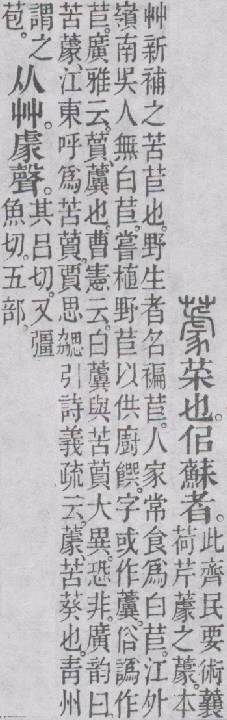 𦼫菜也。佀蘇者。
此齊民要術蘘
荷芹𦼫之𦼫本
艸新補之苦苣也。野生者名褊苣。人家常食爲白苣。江外
嶺南吳人無白苣。嘗植野苣以供廚饌。字或作𧆑。俗譌作
苣。廣雅云。蕒𧆑也。曹憲云。白𧆑與苦蕒大異。恐非。廣韵曰。
苦𦼫江東呼爲苦蕒。賈思勰引詩義疏云。𦼫苦葵也。青州
謂之
苞。
从艸豦聲。
其呂切。又彊
魚切。五部。